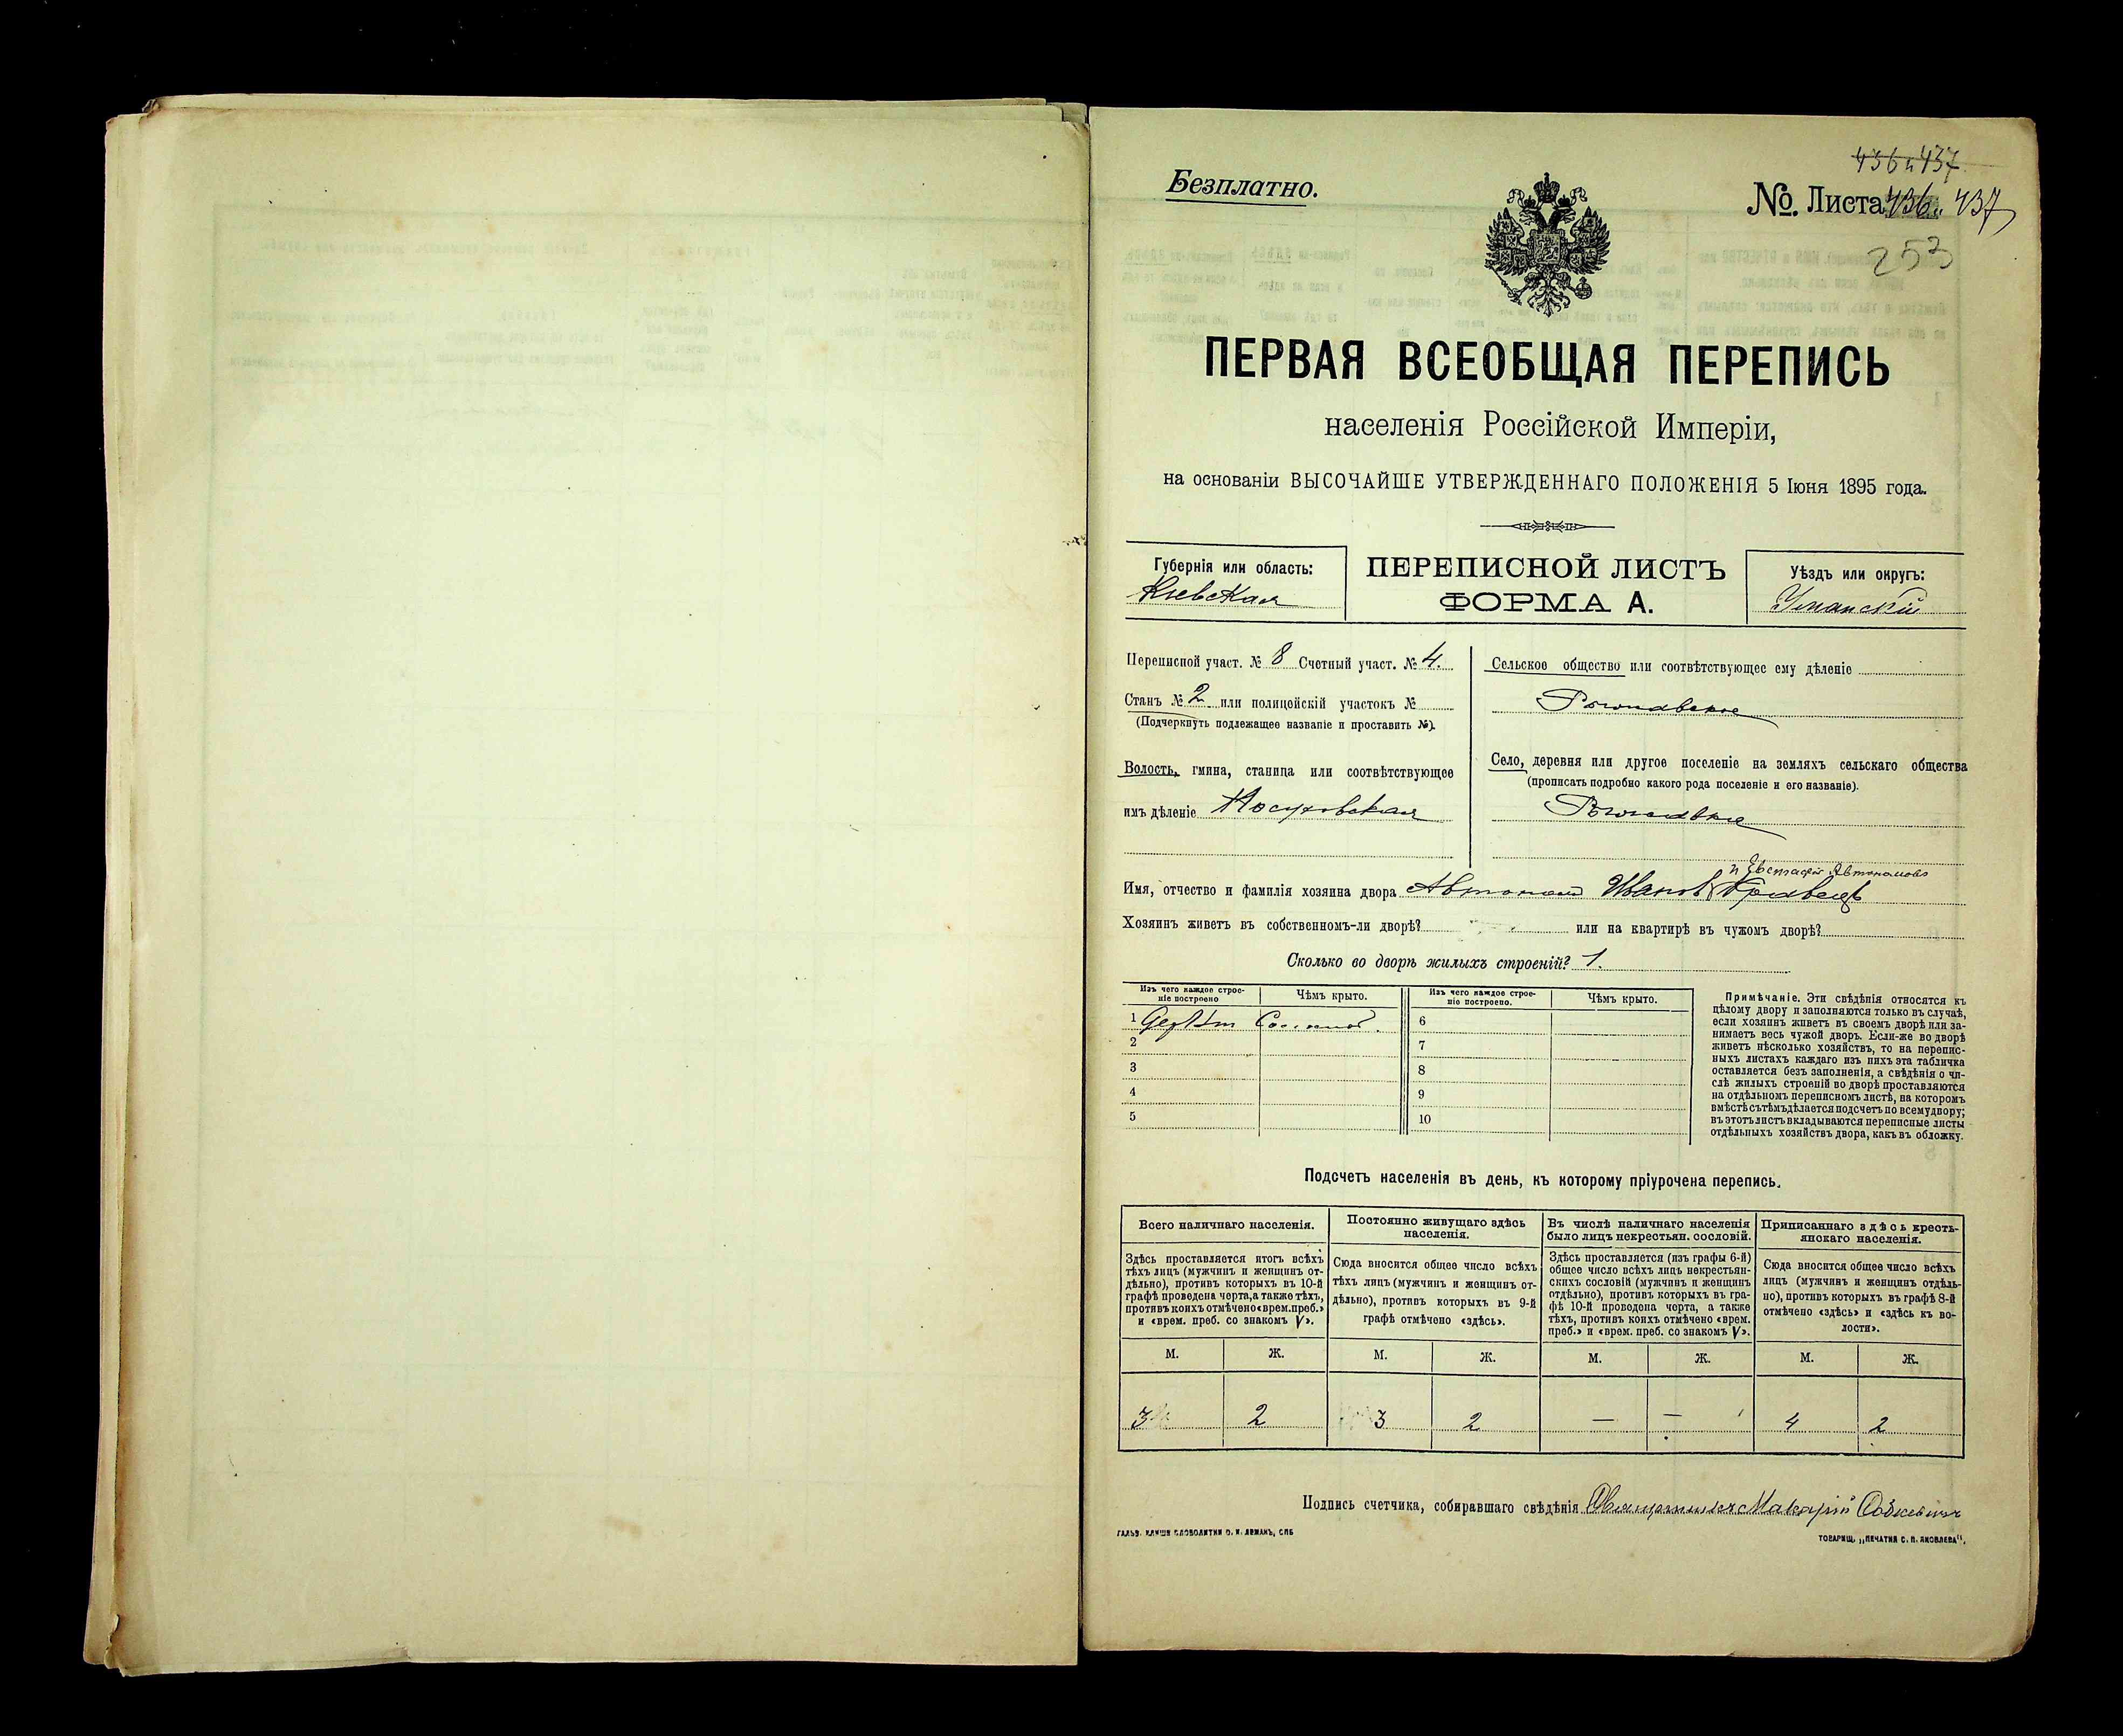 436 и 437
Безплатно.
№. Листа 436 и 437
253
ПЕРВАЯ ВСЕОБЩАЯ ПЕРЕПИСЬ
населенія Россійской Имперіи,
на основаніи ВЫСОЧАЙШЕ УТВЕРЖДЕННАГО ПОЛОЖЕНІЯ 5 Іюня 1895 года.
Губернія или область:
Кіевская
ПЕРЕПИСНОЙ ЛИСТЪ
ФОРМА А.
Уѣздъ или округъ:
Уманскій
Переписной участ. № 8 Счетный участ. № 4.
Станъ № 2 или полицейскій участокъ №
(Подчеркнуть подлежащее названіе и проставить №).
Волость, гмина, станица или соотвѣтствующее
имъ дѣленіе
Сельское общество или соотвѣтствующее ему дѣленіе
Село, деревня или другое поселеніе на земляхъ сельскаго общества
(прописать подробно какого рода поселеніе и его названіе).
и Евстафій Автономовъ
Имя, отчество и фамилія хозяина двора Автономъ Ивановъ Кравецъ
Хозяинъ живетъ въ собственномъ-ли дворѣ? или на квартирѣ въ чужомъ дворѣ?
Сколько во дворѣ жилыхъ строеній? 1.
Изъ чего каждое строе-
ніе построено
Чѣмъ крыто.
1
2
3
4
5
Изъ чего каждое строе-
ніе построено.
Чѣмъ крыто.
6
7
8
9
10
Примѣчаніе. Эти свѣдѣнія относятся къ
цѣлому двору и заполняются только въ случаѣ,
если хозяинъ живетъ въ своемъ дворѣ или за-
нимаетъ весь чужой дворъ. Если-же во дворѣ
живетъ нѣсколько хозяйствъ, то на перепис-
ныхъ листахъ каждаго изъ нихъ эта табличка
оставляется безъ заполненія, а свѣдѣнія о чи-
слѣ жилыхъ строеній во дворѣ проставляются
на отдѣльномъ переписномъ листѣ, на которомъ
вмѣстѣ съ тѣмъ дѣлается подсчетъ по всему двору;
въ этотъ листъ вкладываются переписные листы
отдѣльныхъ хозяйствъ двора, какъ въ обложку.
Подсчетъ населенія въ день, къ которому пріурочена перепись.
Всего наличнаго населенія.
Здѣсь проставляется итогъ всѣхъ
тѣхъ лицъ (мужчинъ и женщинъ от-
дѣльно), противъ которыхъ въ 10-й
графѣ проведена черта, а также тѣхъ,
противъ коихъ отмѣчено «врем. преб.»
и «врем. преб. со знакомъ V».
Постоянно живущаго здѣсь
населенія.
Сюда вносится общее число всѣхъ
тѣхъ лицъ (мужчинъ и женщинъ от-
дѣльно), противъ которыхъ въ 9-й
графѣ отмѣчено «здѣсь».
Въ числѣ наличнаго населенія
было лицъ некрестьян. сословій.
Здѣсь проставляется (изъ графы 6-й)
общее число всѣхъ лицъ некрестьян-
скихъ сословій (мужчинъ и женщинъ
отдѣльно), противъ которыхъ въ гра-
фѣ 10-й проведена черта, а также
тѣхъ, противъ коихъ отмѣчено «врем.
преб.» и «врем. преб. со знакомъ V».
Приписаннаго здѣсь кресть-
янскаго населенія.
Сюда вносится общее число всѣхъ
лицъ (мужчинъ и женщинъ отдѣль-
но), противъ которыхъ въ графѣ 8-й
отмѣчено «здѣсь» и «здѣсь къ во-
лости».
М. Ж. М. Ж. М. Ж. М. Ж.
3 2 3 2 — — 4 2
Подпись счетчика, собиравшаго свѣдѣнія Священникъ Макарій
ТОВАРИЩ. „ПЕЧАТНЯ С. П. ЯКОВЛЕВА“.